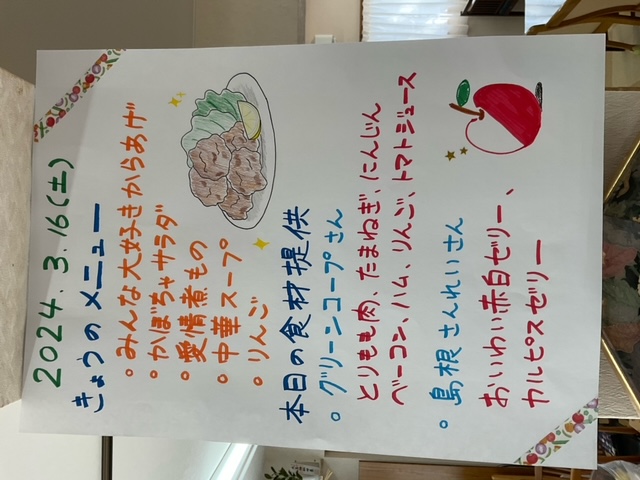 2024.3.16(土)
きょうのメニュー
。みんな大好きからあげ
。かぼちゃサラダ
。愛情煮もの
。中華スープ
。りんご
本日の食材提供
。グリーンコープさん
とりもも肉、たまねぎ、にんじん
ベーコン、ハム、りんご、トマトジュース
。島根さんれいさん
おいわい赤白ゼリー、
カルピスゼリー